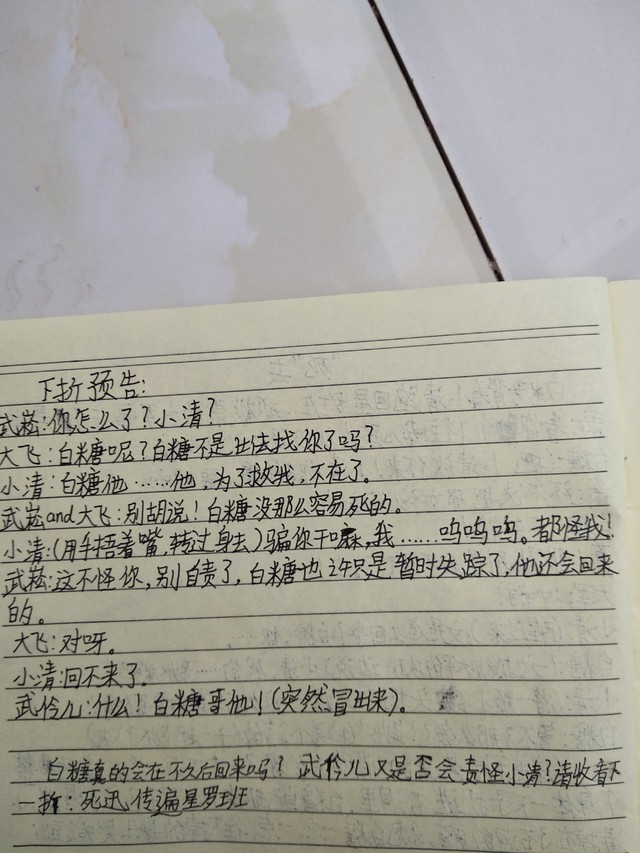 下折预告:
武崧:你怎么了?小清?
大飞:白糖呢?白糖不是出去找你了吗?
小清:白糖他……他,为了救我,不在了。
武崧and大飞:别胡说!白糖没那么容易死的。
小清:(用手捂着嘴,转过身去)骗你干嘛,我……呜呜呜。都怪我!
武崧:这不怪你,别自责了,白糖也许只是暂时失踪了,他还会回来
的。
大飞:对呀。
小清:回不来了。
武伶儿:什么!白糖哥他!(突然冒出来)。
白糖真的会在不久后回来吗?武伶儿又是否会责怪小清?请收看下
一折:死迅传遍星罗班